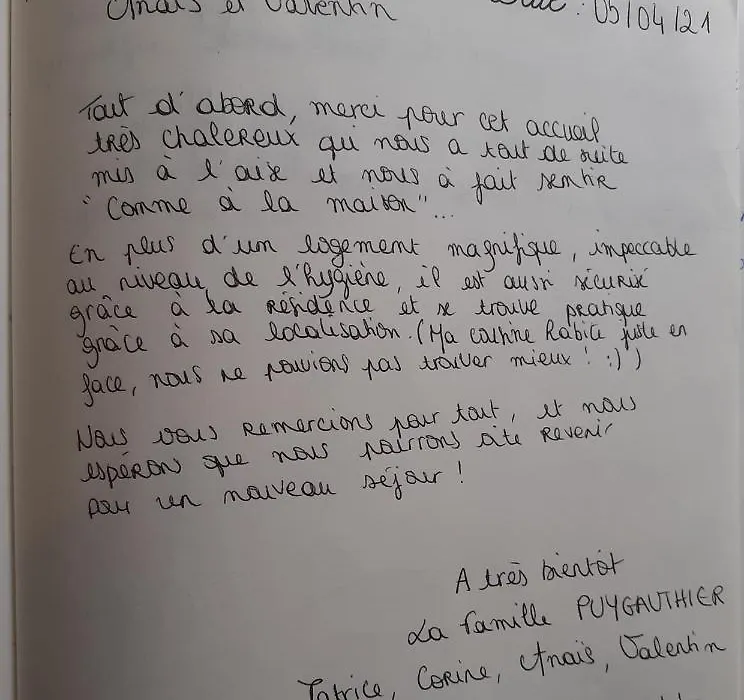 Anaïs et Valentin
Date : 05/04/21
Tout d'abord, merci pour cet accueil
très chalereux qui nous a tout de suite
mis à l'aise et nous à fait sentir
"Comme à la maison"...
En plus d'un logement magnifique, impeccable
au niveau de l'hygiène, il est aussi sécurisé
grâce à la résidence et se trouve pratique
grâce à sa localisation. (Ma cousine habite juste en
face, nous ne pouvions pas trouver mieux ! :) )
Nous vous remercions pour tout, et nous
espérons que nous pourrons vite revenir
pour un nouveau séjour !
A très bientôt
La famille PUYGAUTHIER
Patrice, Corine, Anaïs, Valentin